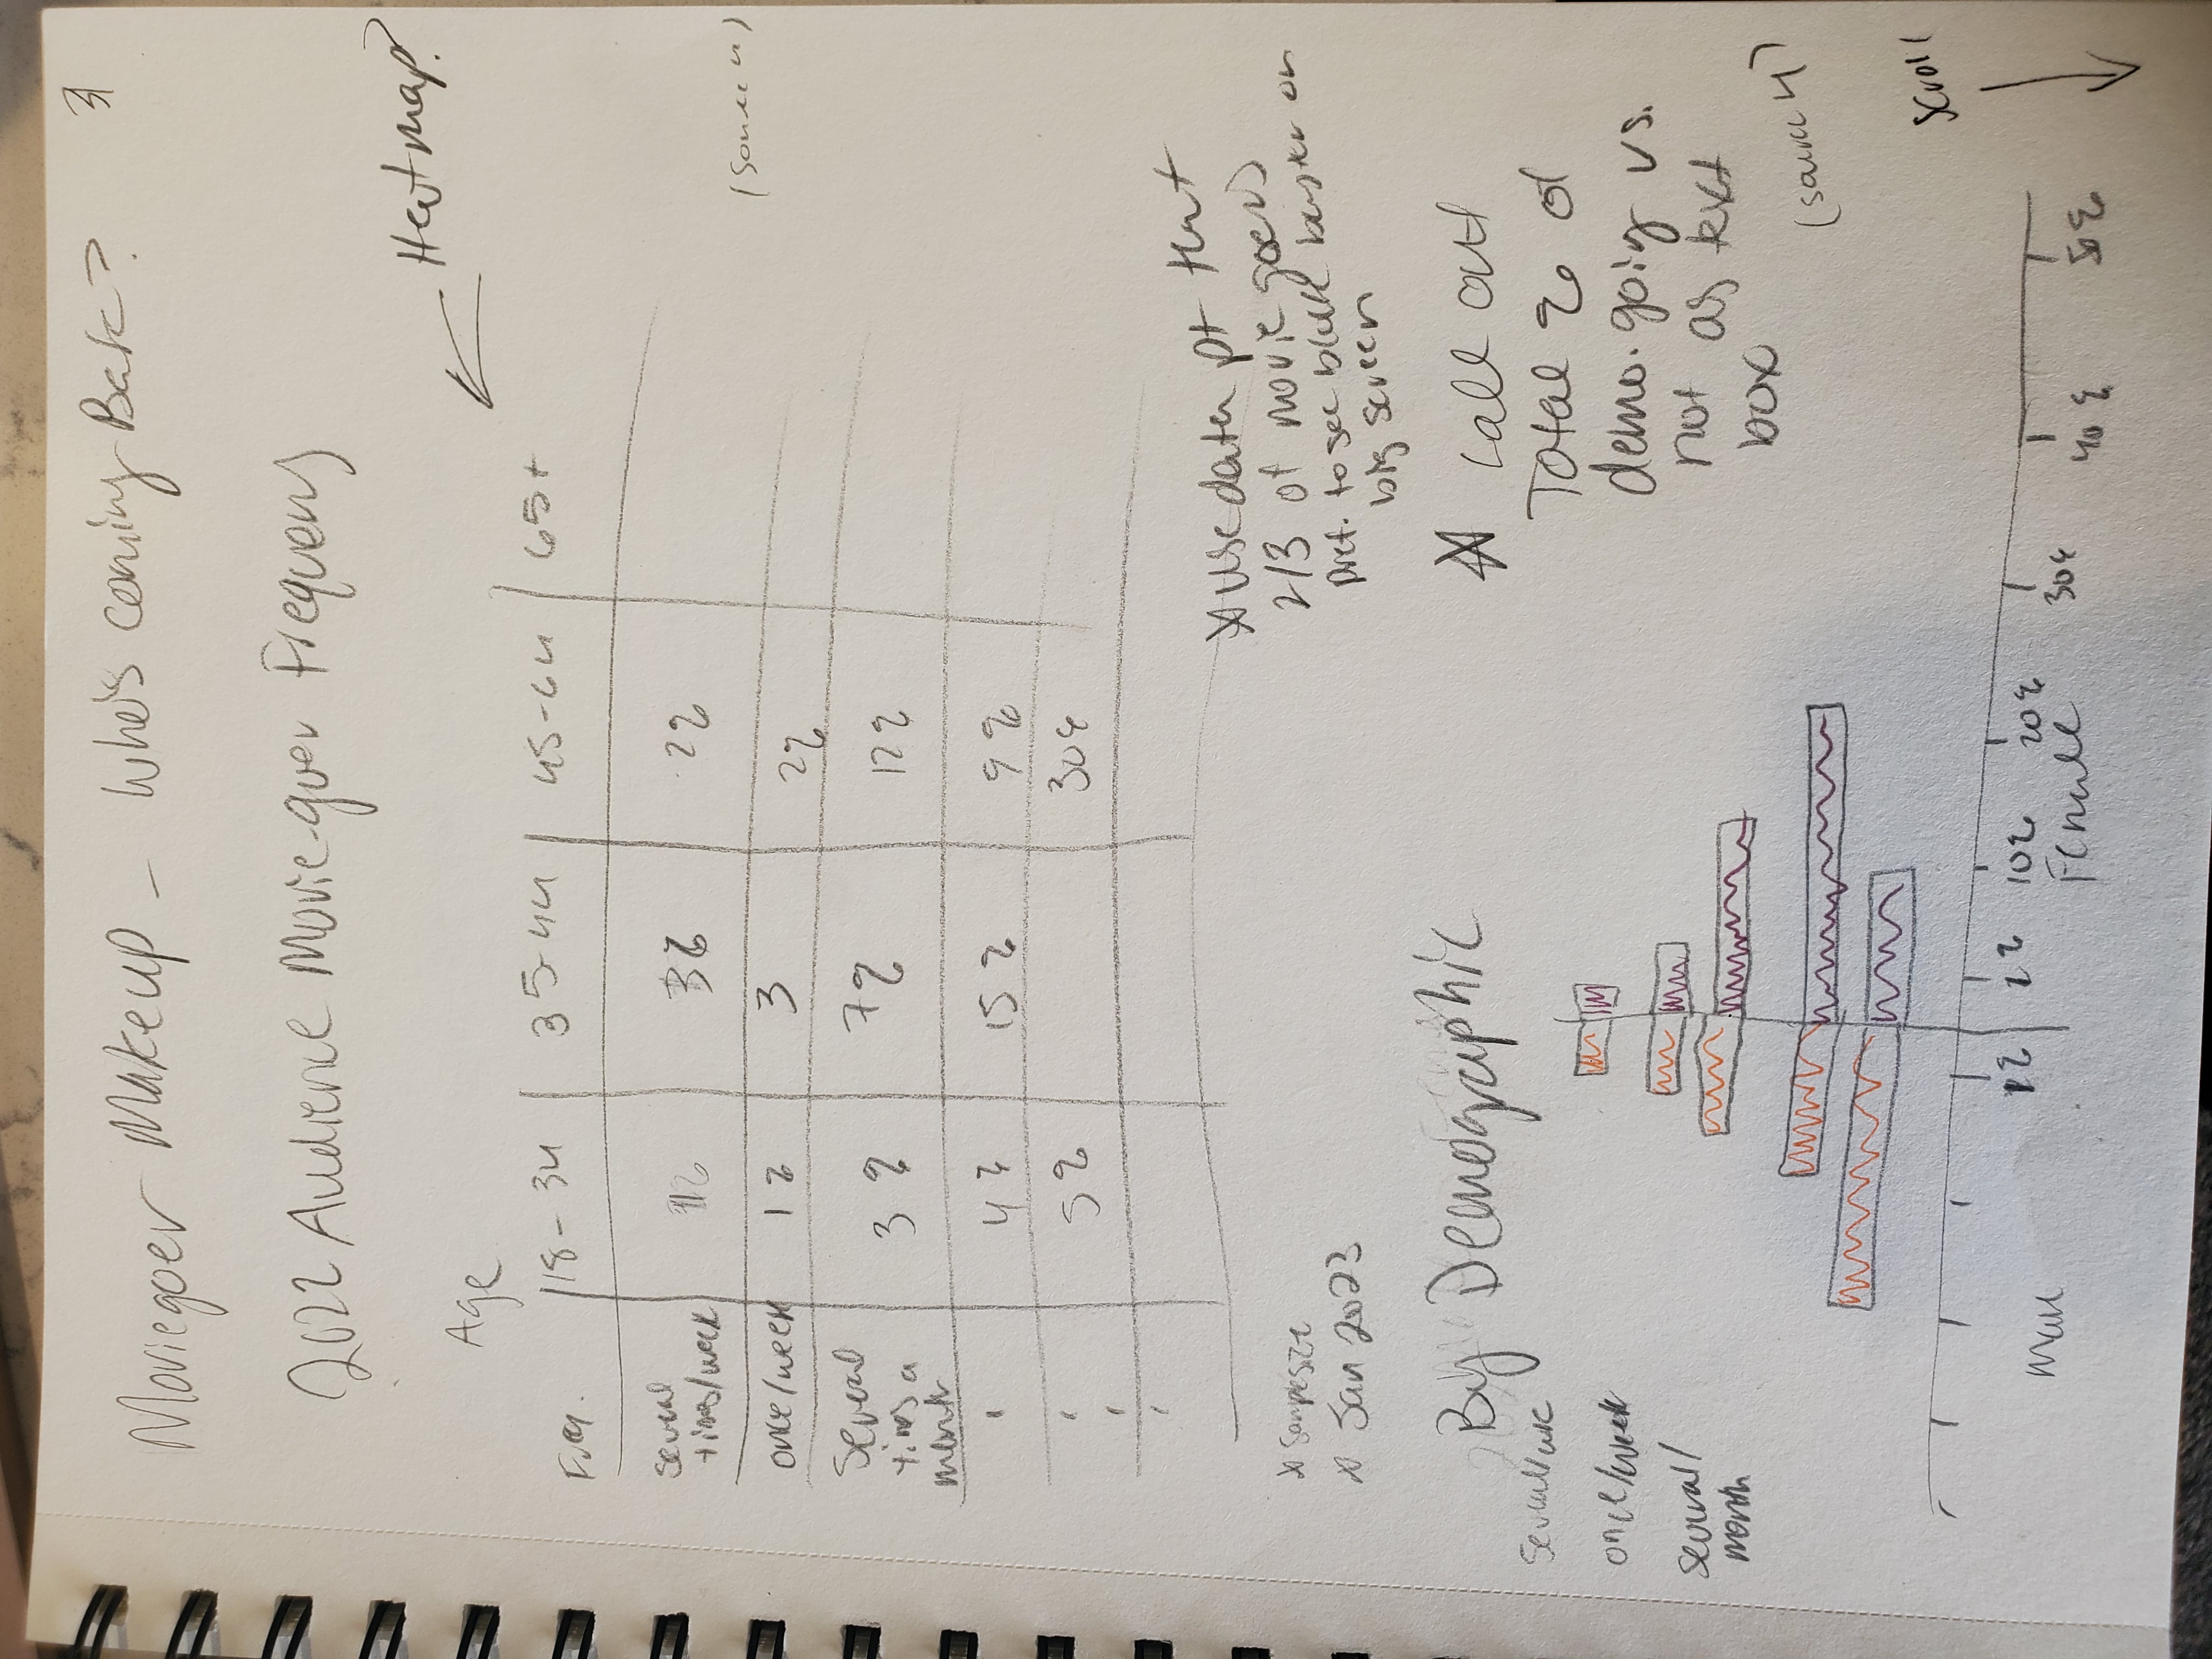 3
Moviegoer Makeup - Who's coming Back?
2022 Audience Movie-goer Frequency
Heatmap?
Age
Freq. 18-34 35-44 45-64 65+
several
times/week 1% 3% 2%
(source 4)
once/week 1% 3 2%
Several
times a
month 3% 7% 12%
4% 15% 9%
5% 30%
* use data pt that
2/3 of movie goers
pref. to see block buster on
big screen
* Sample size
* Jan 2023
By Demographic
Several/wk
once/week
several/
month
* call out
Total % of
demo. going vs.
not as text
box
(source 4)
scroll
1% 1% 10% 20% 30% 40% 50%
Male Female